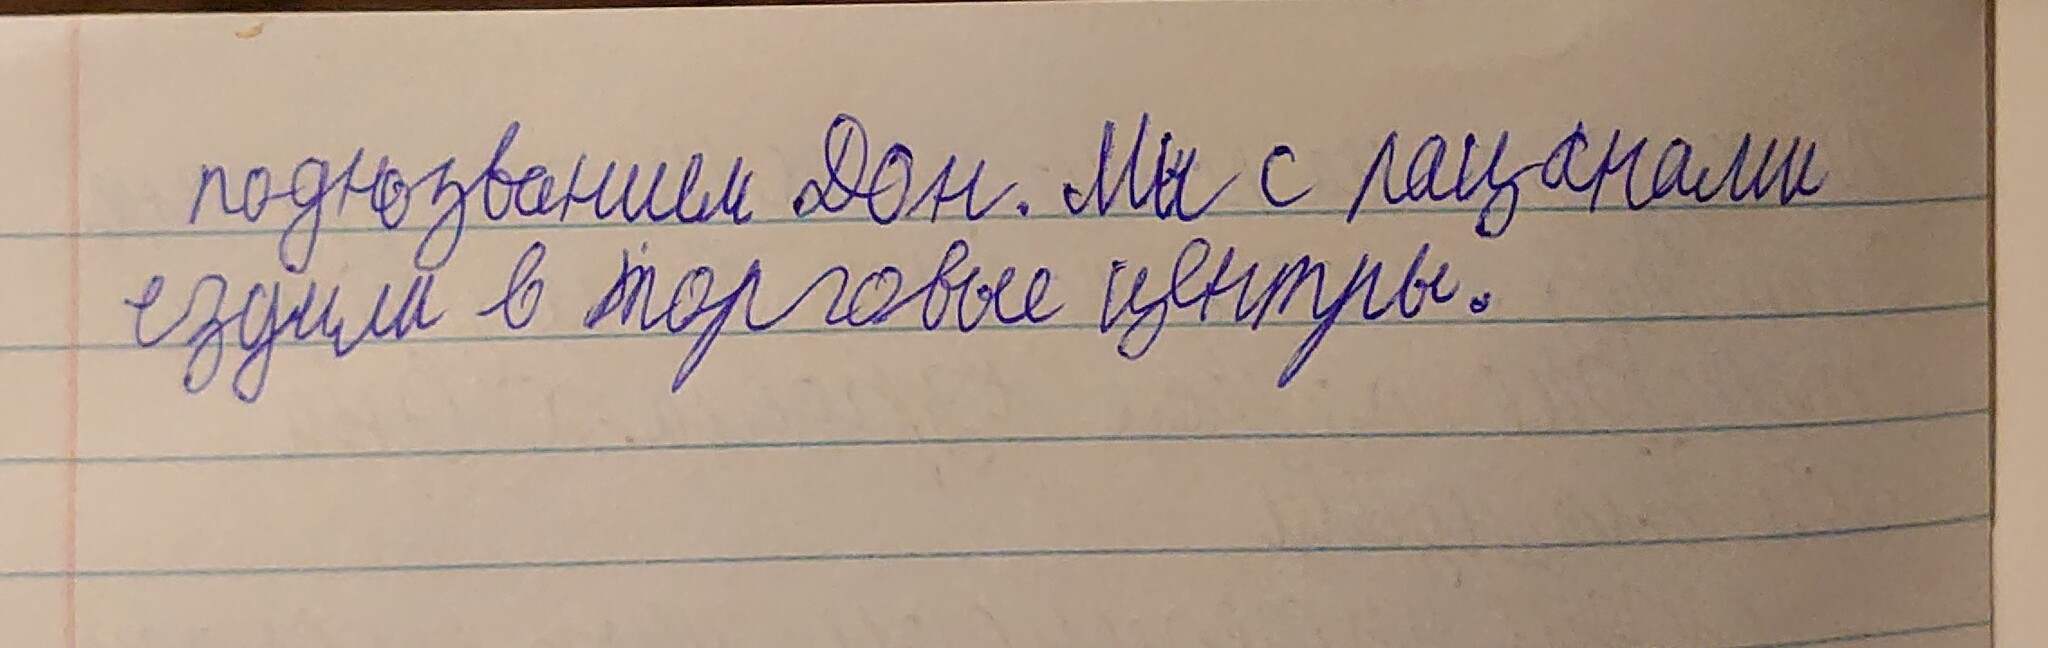 поднозванием Дон. Мы с пацанами
ездили в торговые центры.